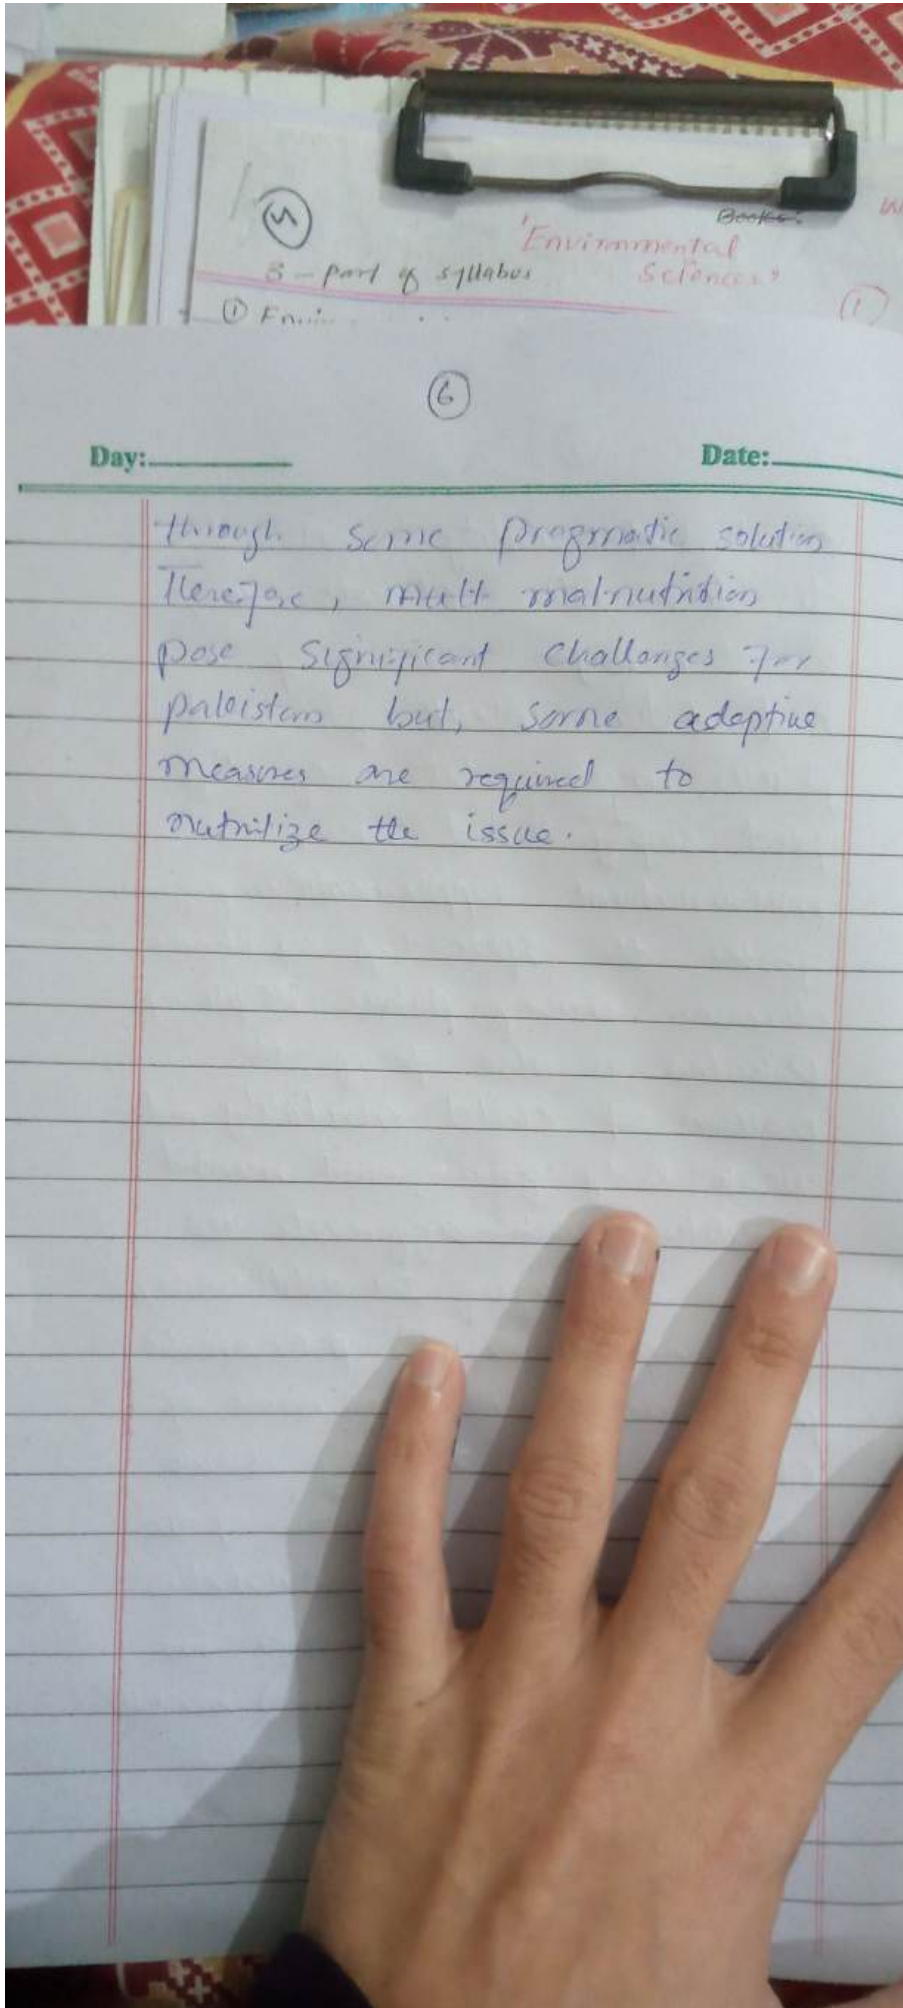 5
Books:
'Environmental
Sciences'
3 - part of syllabus
①
①
6
Day:
Date:
through some pragmatic solution
Therefore, malnutrition
pose significant challenges for
pakistan but, some adaptive
measures are required to
nutrilize the issue.